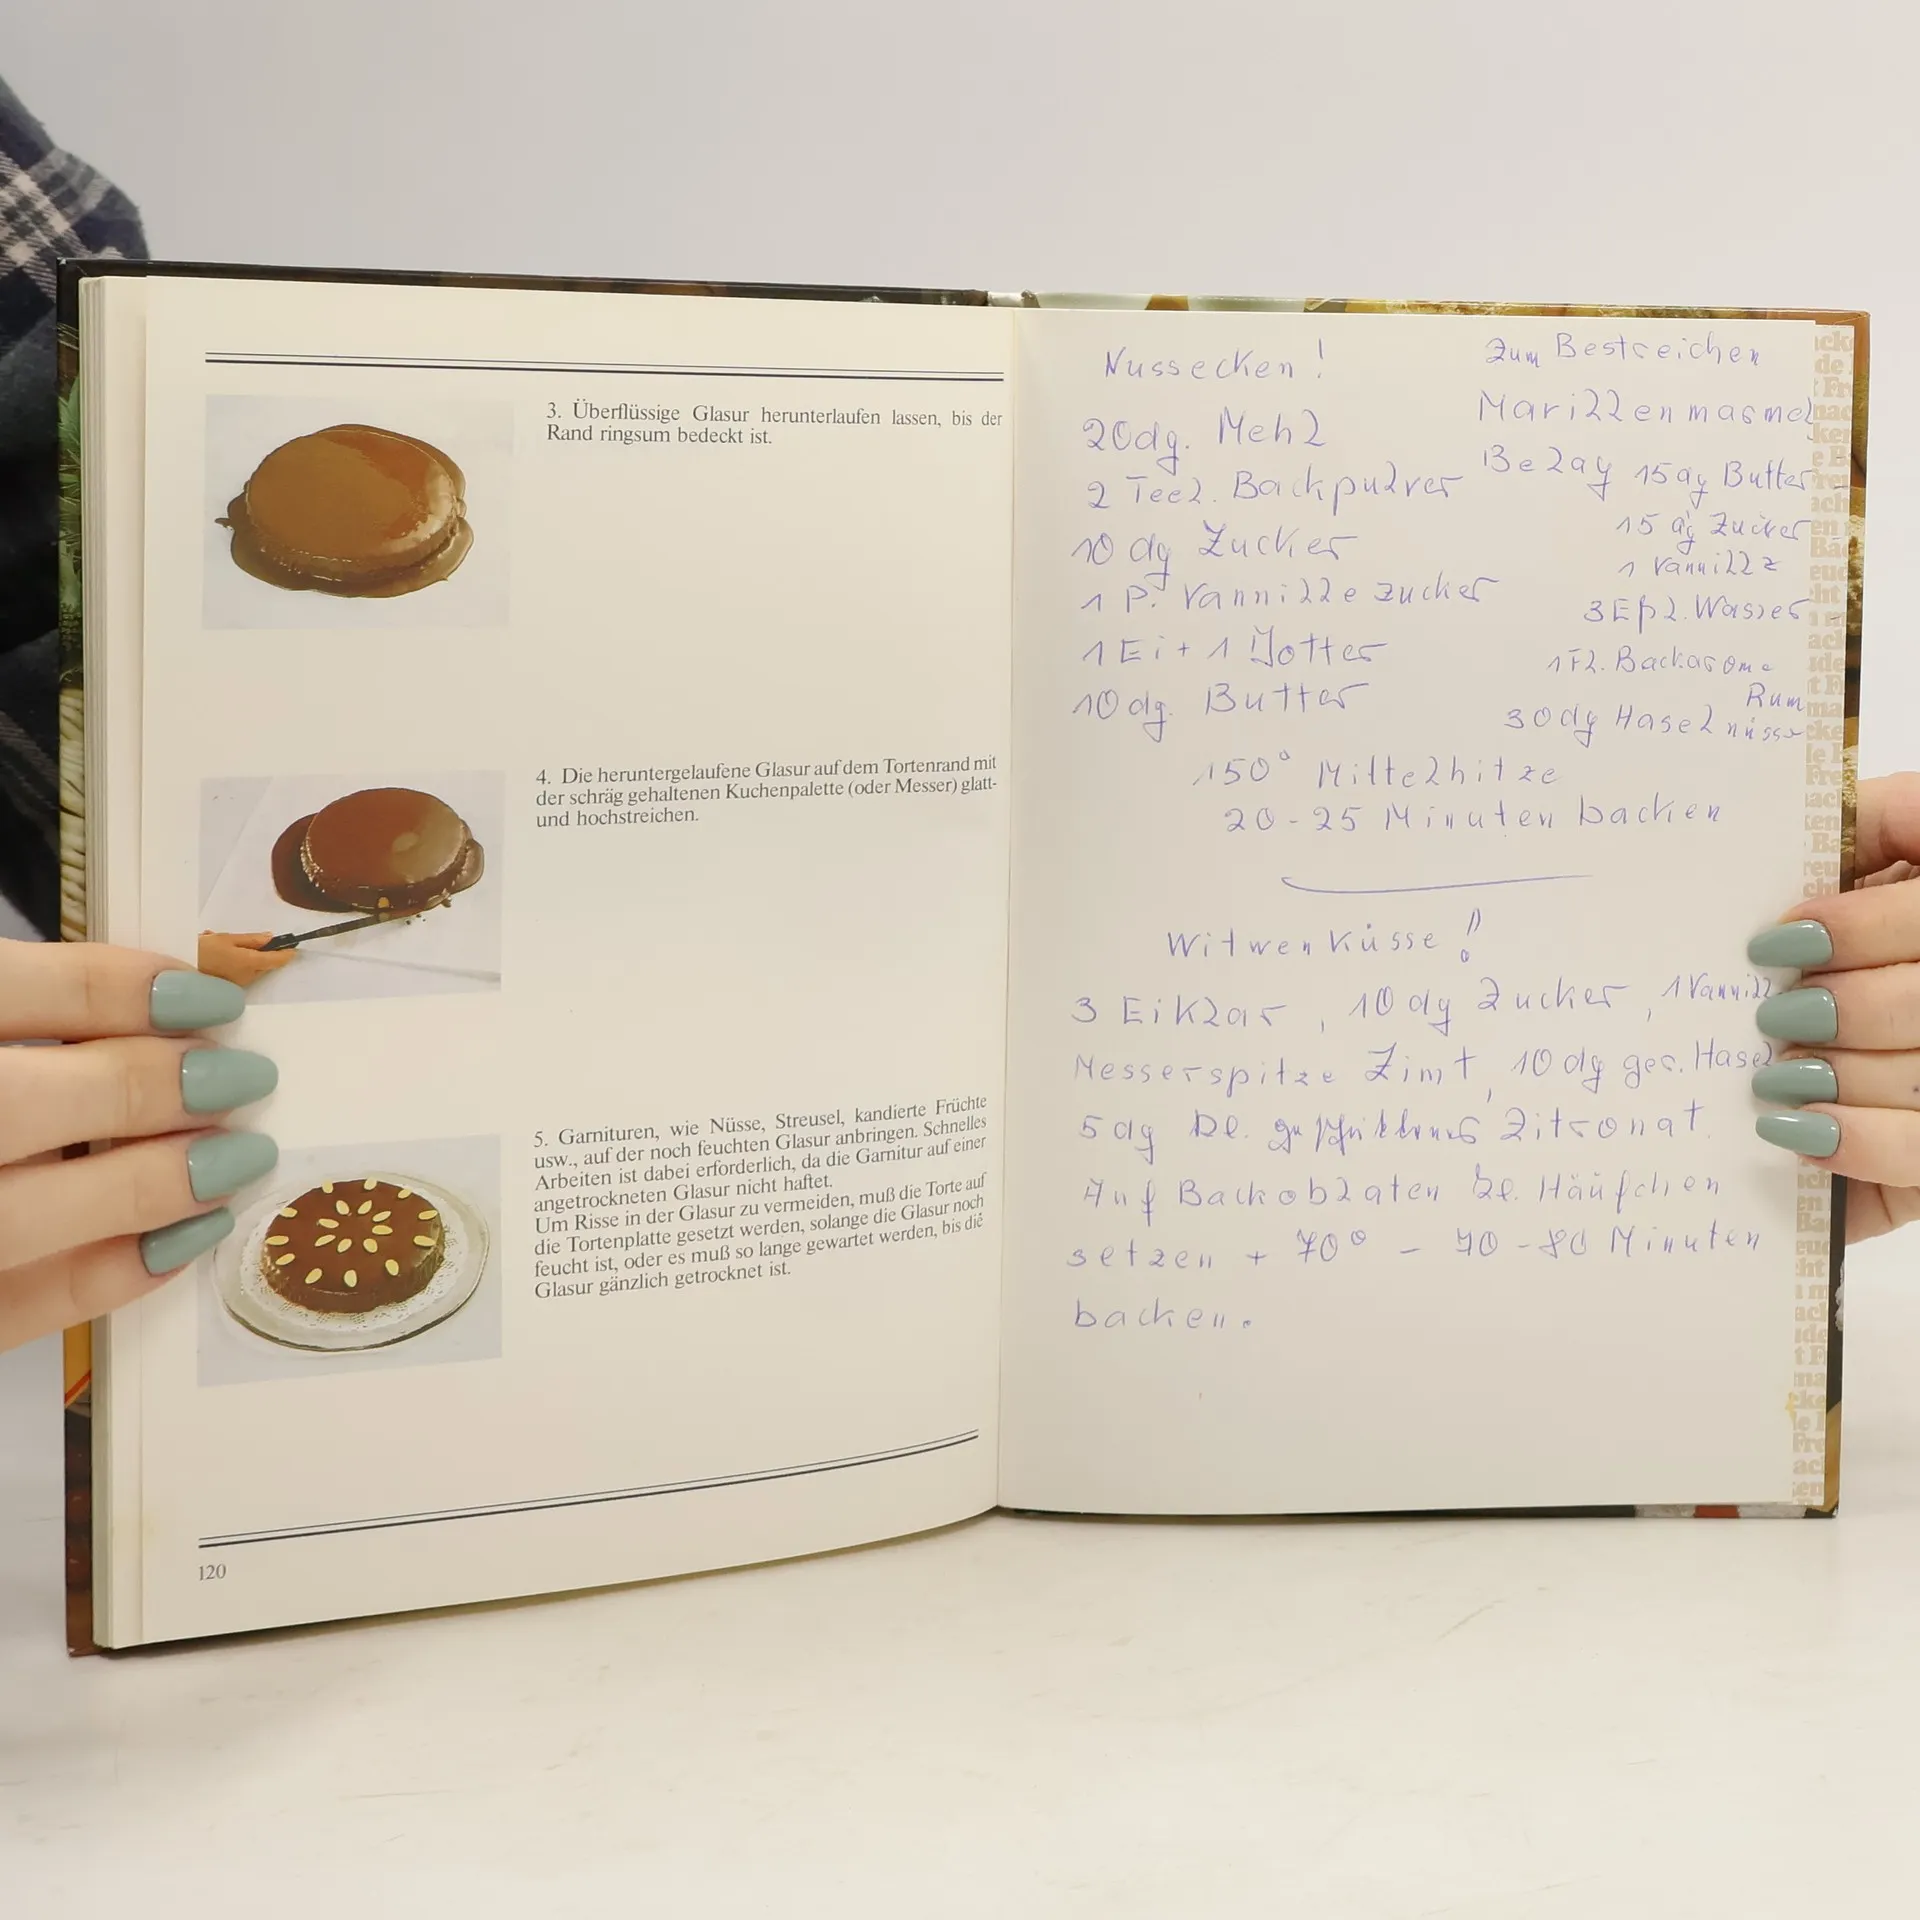 3. Überflüssige Glasur herunterlaufen lassen, bis der
Rand ringsum bedeckt ist.
4. Die heruntergelaufene Glasur auf dem Tortenrand mit
der schräg gehaltenen Kuchenpalette (oder Messer) glatt-
und hochstreichen.
5. Garnituren, wie Nüsse, Streusel, kandierte Früchte
usw., auf der noch feuchten Glasur anbringen. Schnelles
Arbeiten ist dabei erforderlich, da die Garnitur auf einer
angetrockneten Glasur nicht haftet.
Um Risse in der Glasur zu vermeiden, muß die Torte auf
die Tortenplatte gesetzt werden, solange die Glasur noch
feucht ist, oder es muß so lange gewartet werden, bis die
Glasur gänzlich getrocknet ist.
120
Nussecken!
20dg. Mehl
2 Teel. Backpulver
10 dg Zucker
1 P. Vannillezucker
1 Ei + 1 Dotter
10 dg. Butter
Zum Bestreichen
Marillenmarmel
Belag 15 dg Butter
15 dg Zucker
1 Vannillz
3 Eßl. Wasser
1 Fl. Backaroma
Rum
30dg Haselnüsse
150° Mittelhitze
20-25 Minuten backen
Witwenküsse!
3 Eiklar, 10 dg Zucker, 1 Vannill
Messerspitze Zimt, 10 dg ger. Hasel
5 dg Zitronat.
Auf Backoblaten kl. Häufchen
setzen + 70° - 70-80 Minuten
backen.